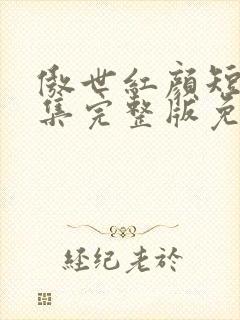 傲世紅顔短
集完整版免
经纪老於